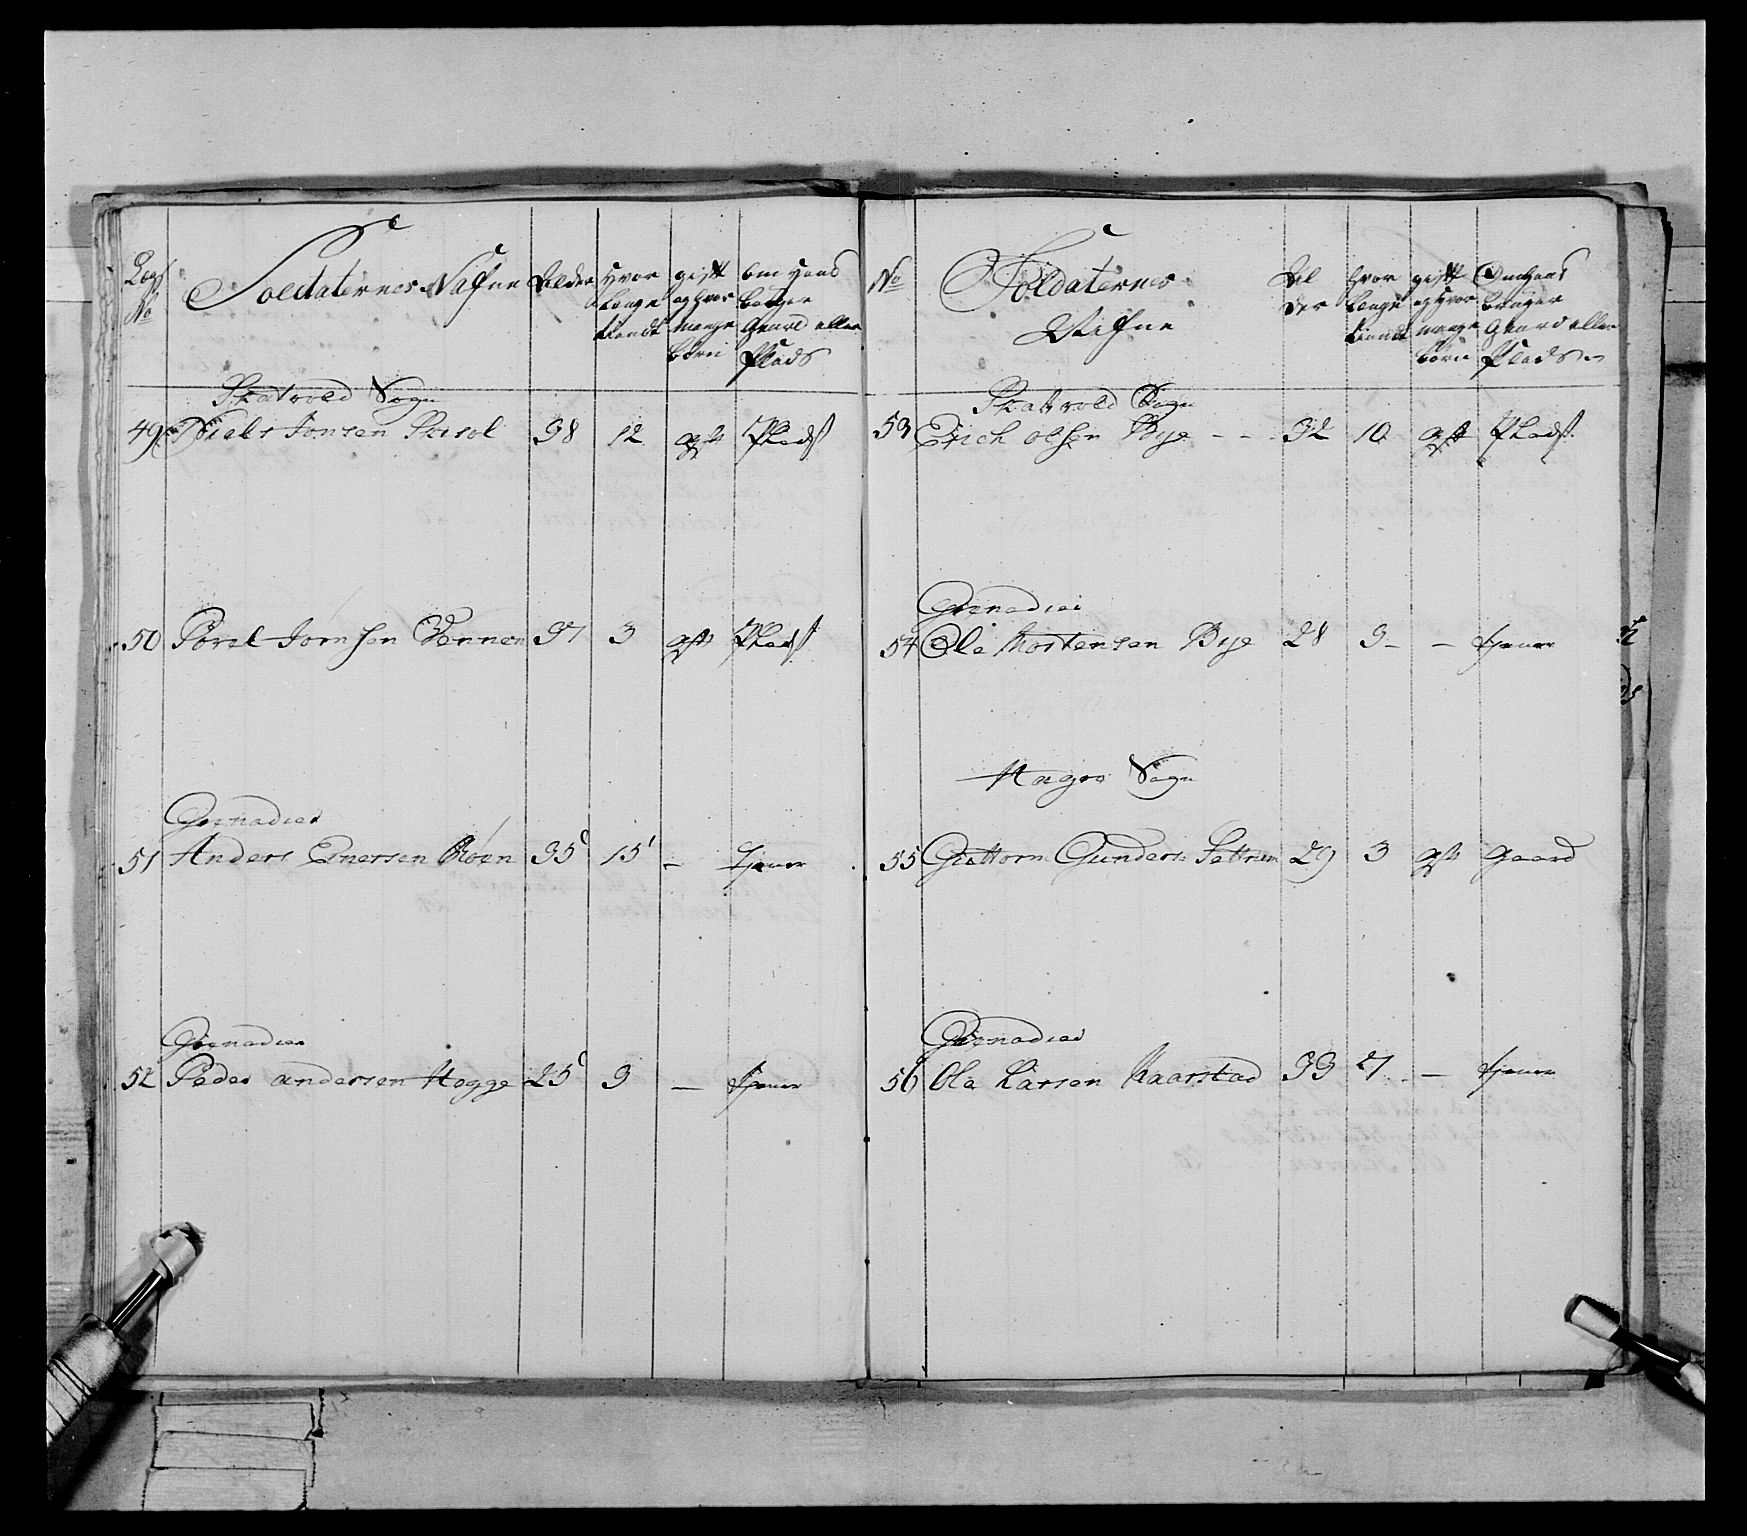 Lægs No Soldaternes Nafne Alder Hvor længe tient gift og hvor mange børn om hand bruger Gaard eller Plads
Skatvold Sogn
49 Niels Jonsen 38 12 gift Plads
50 Sørel Jonsen Vennen 37 3 gift Plads
Grenadier
51 Anders Enersen 35 15 - tjener
Grenadier
52 Peder andersen Hogge 25 3 - tjener
No Soldaternes Nafne Alder hvor længe tient gift og hvor mange børn Om hand bruger Gaard eller Plads
Skatvold Sogn
53 Erich olsen Bye - - 32 10 gift Plads
Grenadier
54 Ole Mortensen Bye 28 3 - - tjener
Sogn
55 Guttorm Gunders: 29 3 gift Gaard
Grenadier
56 Ole Larsen Kaarstad 33 7 - tjener